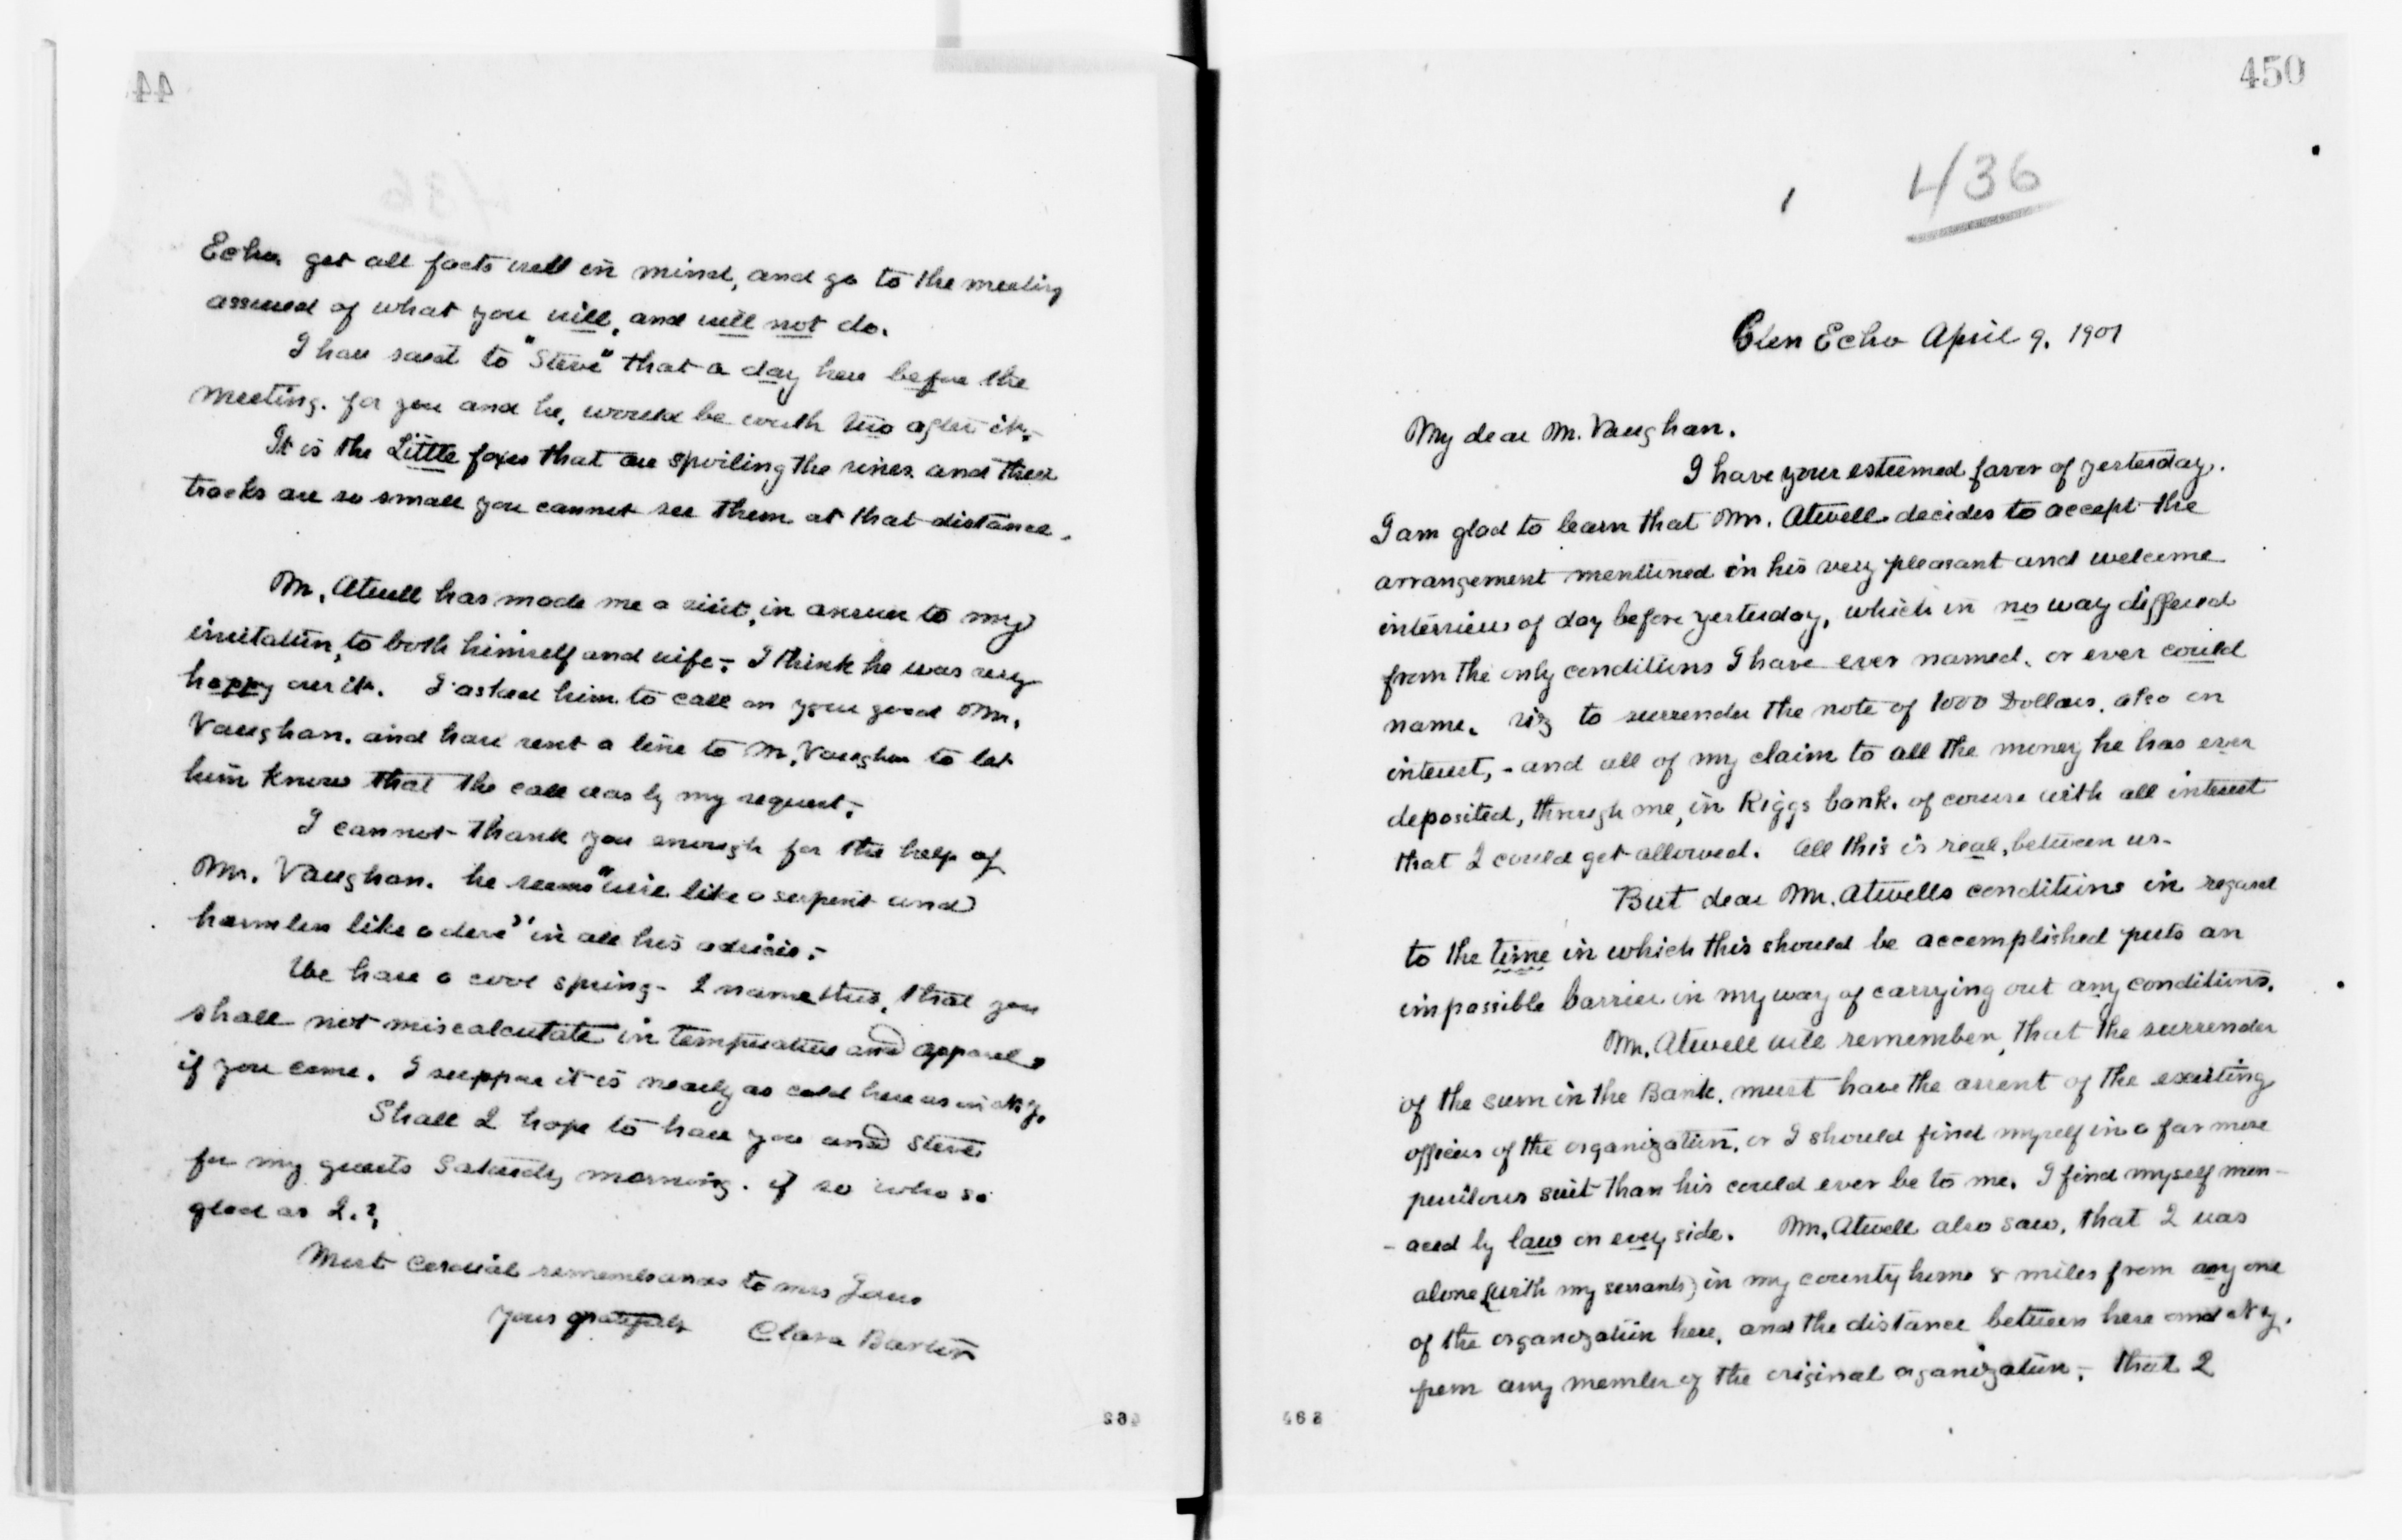 44
Echo. get all facts well in mind, and go to the meeting
assured of what you will, and will not do.
I have said to "Steve" that a day here before the
meeting. for you and he, would be worth two after it.-
It is the Little foxes that are spoiling the vines. and their
tracks are so small you cannot see them at that distance.
Mr. Atwell has made me a visit, in answer to my
invitation, to both himself and wife.- I think he was very
happy over it. I asked him to call on your good Mr.
Vaughan. and have sent a line to Mr. Vaughan to let
him know that the call was by my request.-
I cannot thank you enough for the help of
Mr. Vaughan. he seems "wise like a serpent and
harmless like a dove" in all his advice.-
We have a cool spring- I name this, that you
shall not miscalculate in temperature and apparel,
if you come. I suppose it is nearly as cold here as in N.Y.
Shall I hope to have you and Steve
for my guests Saturday morning. if so who so
glad as I.?
Most Cordial remembrances to Mrs
Yours gratefully Clara Barton
462
450
1 436
Glen Echo April 9. 1901
My dear Mr. Vaughan.
I have your esteemed favor of yesterday.
I am glad to learn that Mr. Atwell decides to accept the
arrangement mentioned in his very pleasant and welcome
interview of day before yesterday, which in no way differed
from the only conditions I have ever named, or ever could
name. viz to surrender the note of 1000 Dollars. also on
interest,- and all of my claim to all the money he has ever
deposited, through me, in Riggs bank. of course with all interest
that I could get allowed. All this is real, between us-
But dear Mr. Atwells conditions in regard
to the time in which this should be accomplished puts an
impossible barrier in my way of carrying out any conditions.
Mr. Atwell will remember, that the surrender
of the sum in the Bank. must have the assent of the existing
officers of the organization, or I should find myself in a far more
perilous suit than his could ever be to me. I find myself men-
-aced by law on every side. Mr. Atwell also saw, that I was
alone (with my servants) in my county home 8 miles from any one
of the organization here, and the distance between here and N.Y.
from any member of the original organization,- that I
463